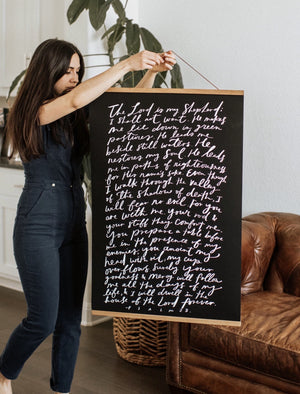 The Lord is my Shepherd;
I shall not want. He makes
me lie down in green
pastures. He leads me
beside still waters. He
restores my Soul. He leads
me in paths of righteousness
for His names sake. Even though
I walk through the valley
of the shadow of death, I
will fear no evil, for you
are with me. Your rod &
your staff they comfort me.
You prepare a table before
me in the presence of my
enemies; you anoint my
head with oil; my cup
overflows. Surely your
goodness & mercy will follow
me all the days of my
life, & I will dwell in the
house of the Lord forever.
PSALM 23